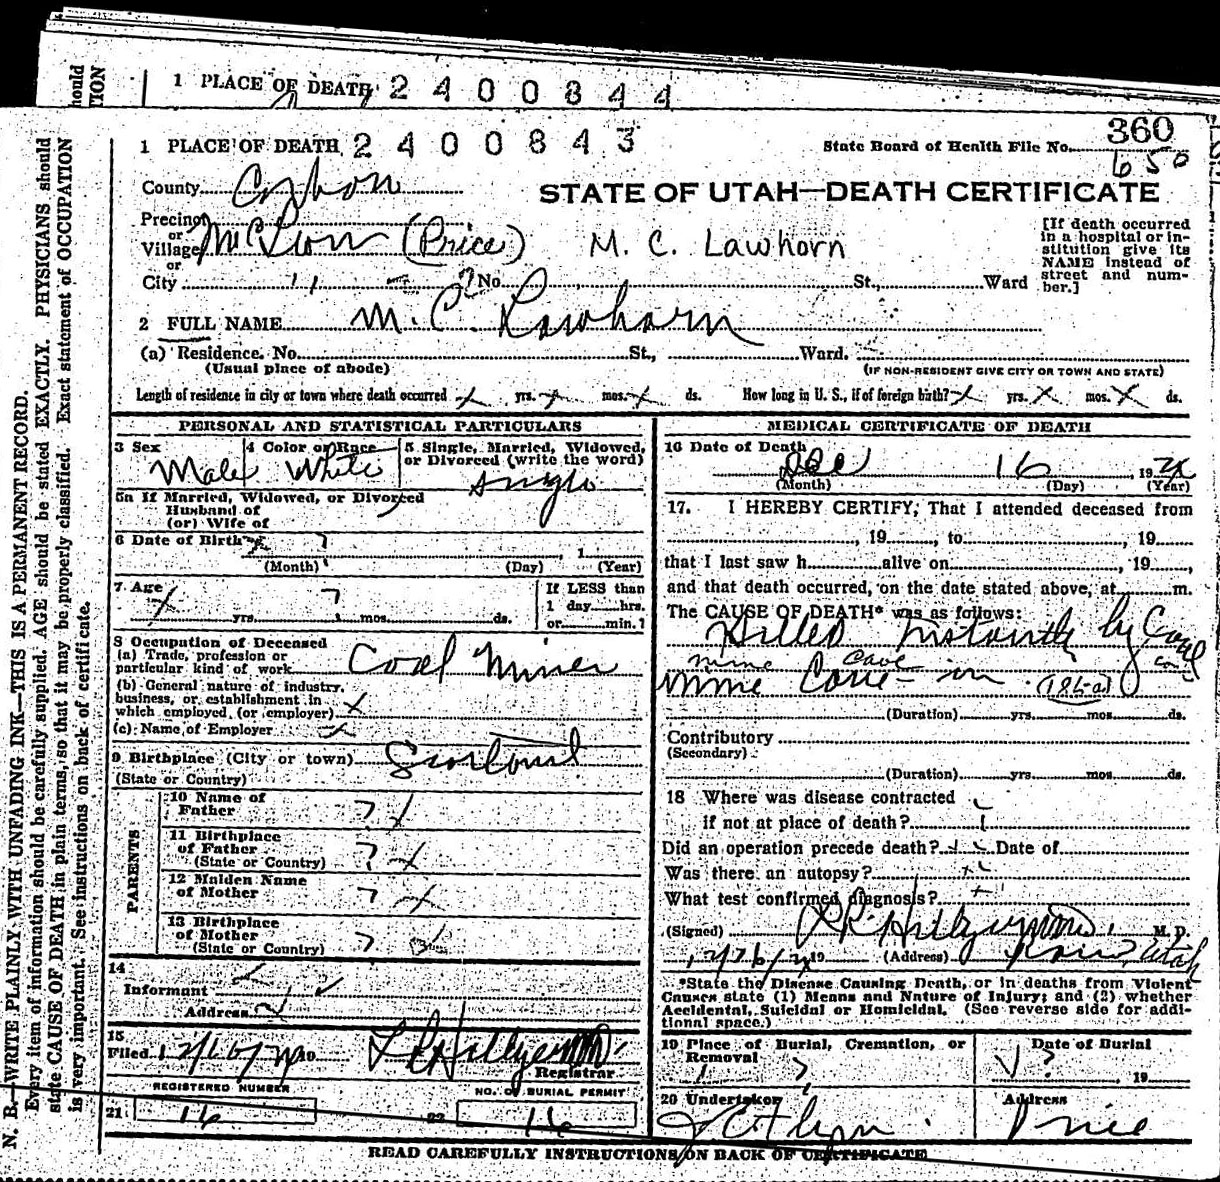 hould
TION
1 PLACE OF DEATH 2 4 0 0 8 4 4
1 PLACE OF DEATH 2 4 0 0 8 4 3
State Board of Health File No. 360
650
County Carbon
STATE OF UTAH—DEATH CERTIFICATE
Precinct
or
Village (Price) M. C. Lawhorn
or
City " ? No. St., Ward
[If death occurred
in a hospital or in-
stitution give its
NAME instead of
street and num-
ber.]
2 FULL NAME M. C. Lawhorn
(a) Residence. No. St., Ward.
(Usual place of abode) (IF NON-RESIDENT GIVE CITY OR TOWN AND STATE)
Length of residence in city or town where death occurred x yrs. x mos. x ds. How long in U. S., if of foreign birth? x yrs. x mos. x ds.
PERSONAL AND STATISTICAL PARTICULARS
3 Sex 4 Color or Race 5 Single, Married, Widowed,
or Divorced (write the word)
Male White Single
5a If Married, Widowed, or Divorced
Husband of
(or) Wife of
6 Date of Birth x ? , 1
(Month) (Day) (Year)
7 Age x yrs. ? mos. ds.
If LESS than
1 day hrs.
or min.?
8 Occupation of Deceased
(a) Trade, profession or
particular kind of work Coal Miner
(b) General nature of industry,
business, or establishment in
which employed (or employer) x
(c) Name of Employer x
9 Birthplace (City or town)
(State or Country)
PARENTS
10 Name of
Father ? x
11 Birthplace
of Father
(State or Country) ? x
12 Maiden Name
of Mother ? x
13 Birthplace
of Mother
(State or Country) ?
14
Informant
Address
15
Filed 19
Registrar
REGISTERED NUMBER NO. OF BURIAL PERMIT
21 16 22 16
MEDICAL CERTIFICATE OF DEATH
16 Date of Death
Dec 16 192
(Month) (Day) (Year)
17. I HEREBY CERTIFY, That I attended deceased from
, 19 , to , 19
that I last saw h alive on , 19 ,
and that death occurred, on the date stated above, at m.
The CAUSE OF DEATH* was as follows:
Killed instantly by Coal
mine cave in
mine Cave-in (186-a)
(Duration) yrs. mos. ds.
Contributory
(Secondary)
(Duration) yrs. mos. ds.
18 Where was disease contracted
if not at place of death?
Did an operation precede death? Date of
Was there an autopsy?
What test confirmed diagnosis?
(Signed) M. D.
19 (Address) Price, Utah
*State the Disease Causing Death, or in deaths from Violent
Causes state (1) Means and Nature of Injury; and (2) whether
Accidental, Suicidal or Homicidal. (See reverse side for addi-
tional space.)
19 Place of Burial, Cremation, or
Removal
?
Date of Burial
? 19
20 Undertaker
Address
Price
READ CAREFULLY INSTRUCTIONS ON BACK OF CERTIFICATE
N. B.—WRITE PLAINLY WITH UNFADING INK—THIS IS A PERMANENT RECORD.
Every item of information should be carefully supplied. AGE should be stated EXACTLY. PHYSICIANS should
state CAUSE OF DEATH in plain terms, so that it may be properly classified. Exact statement of OCCUPATION
is very important. See instructions on back of certificate.